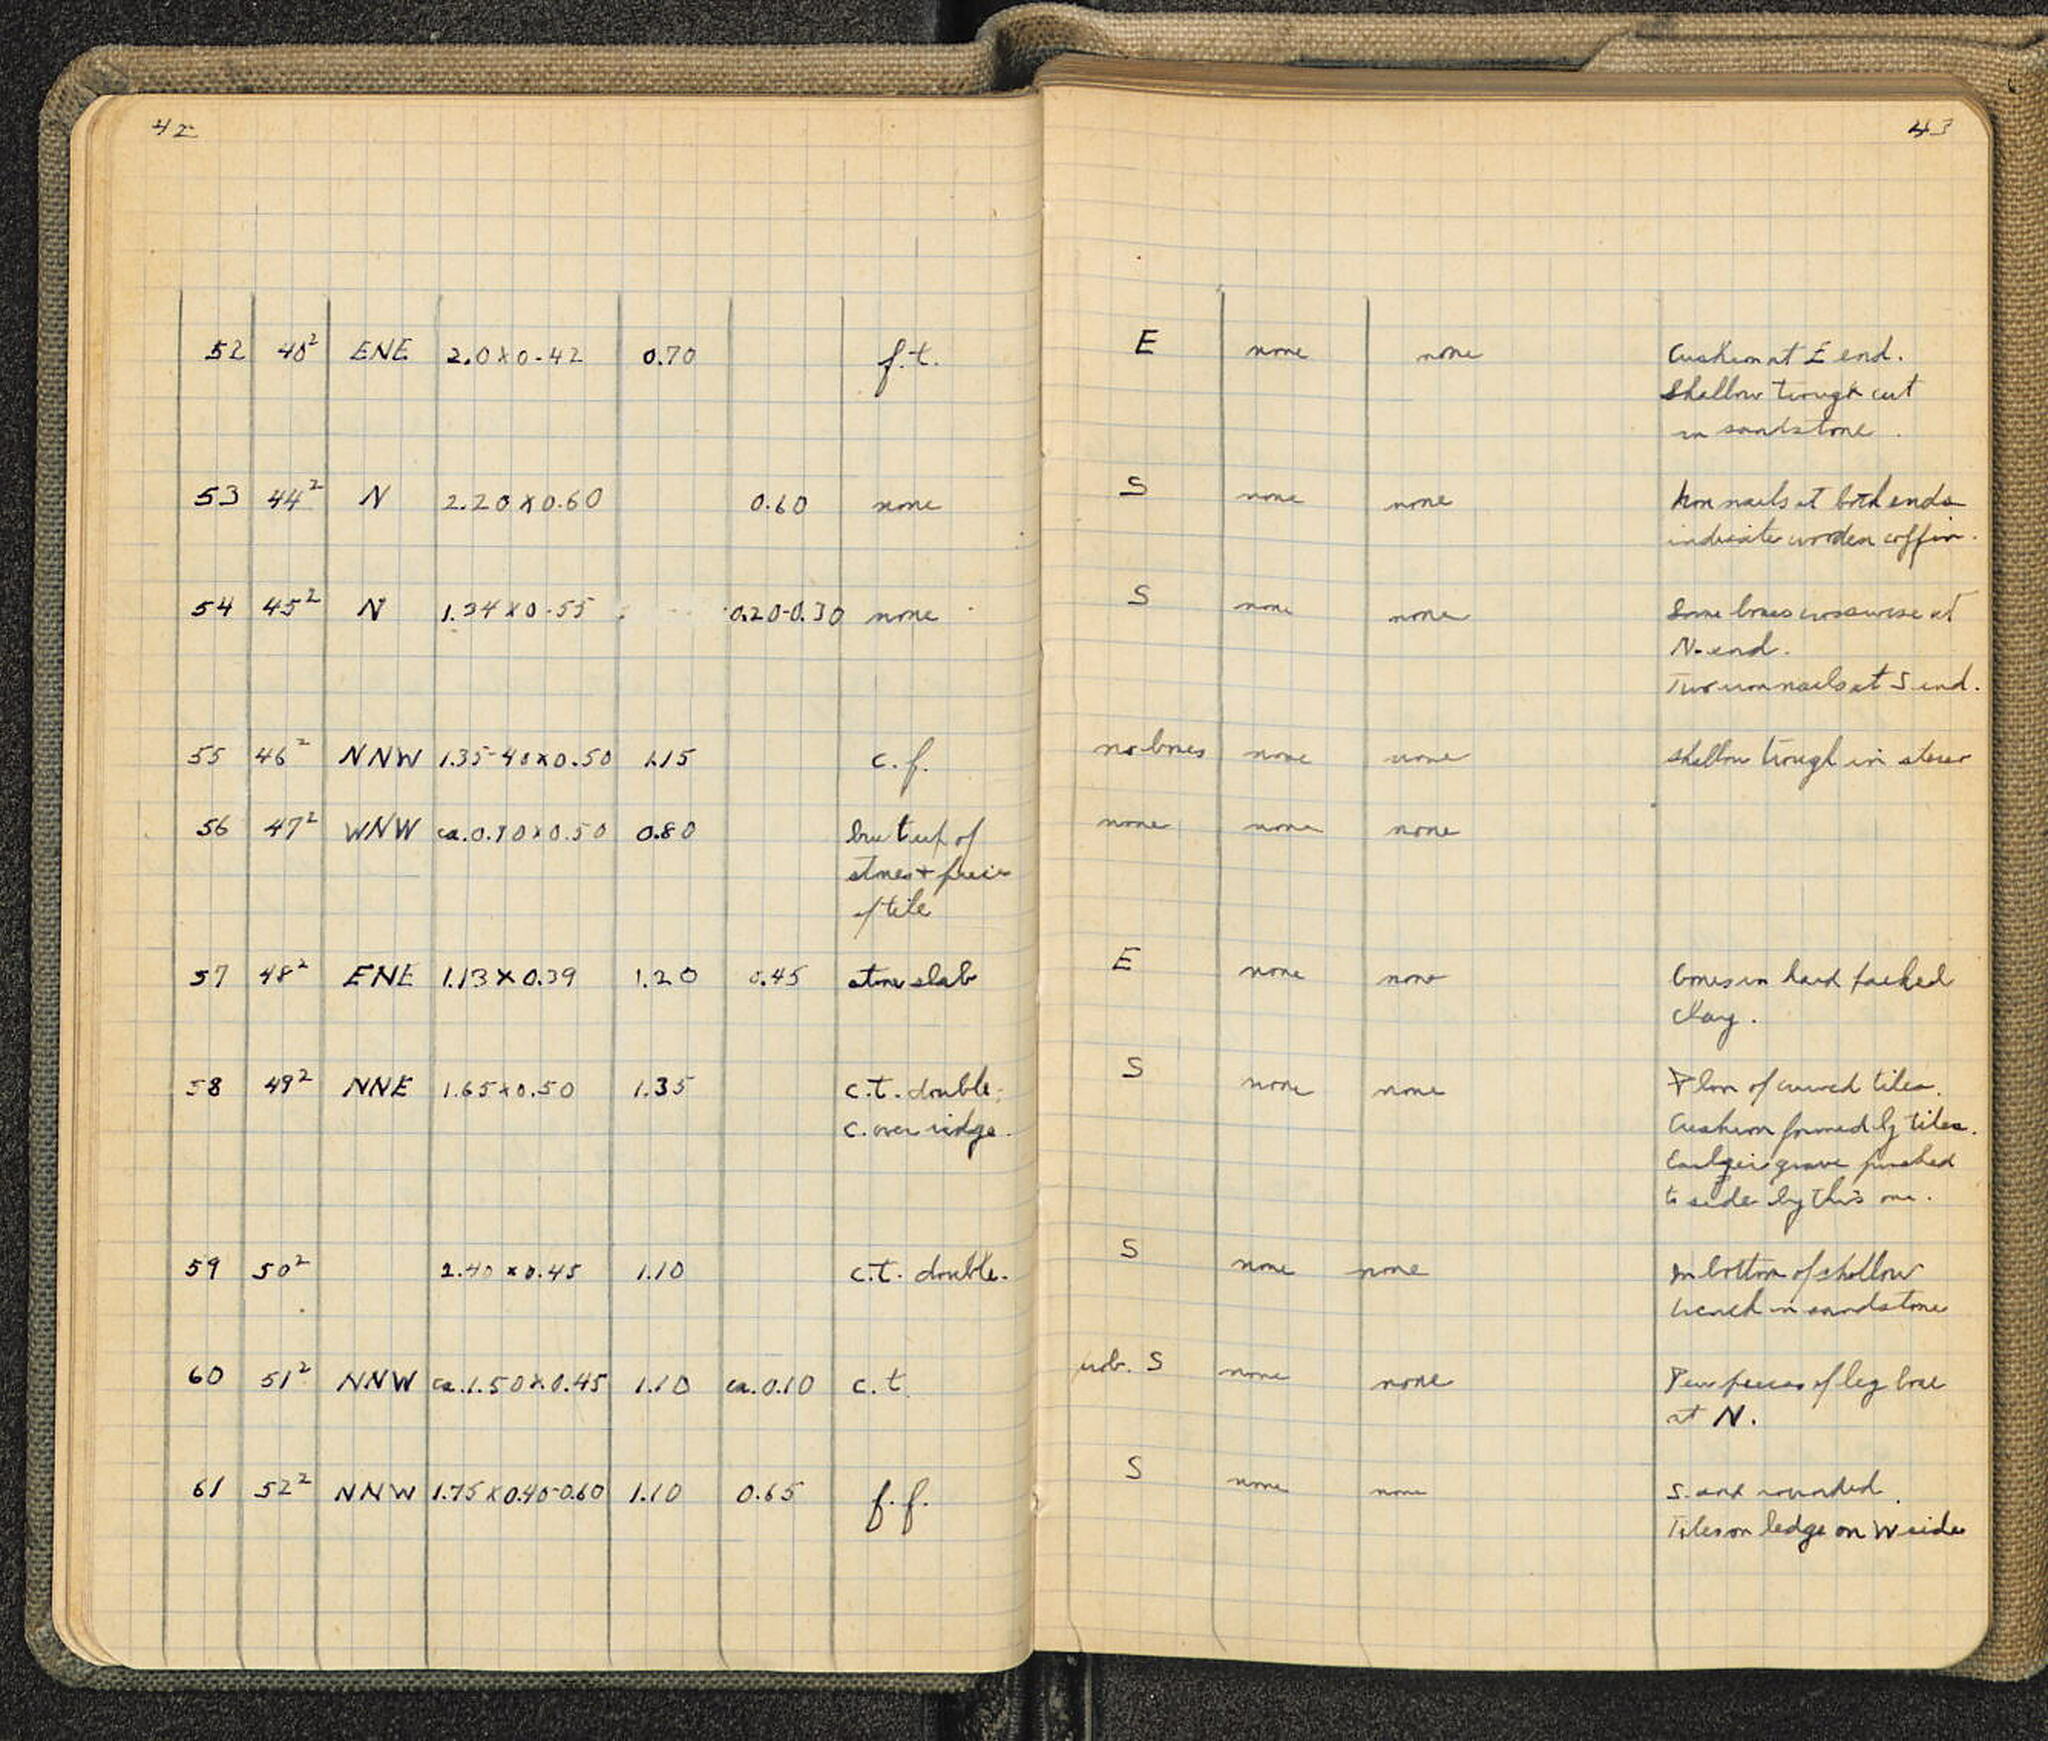 42
52 40² ENE 2.0 x 0.42 0.70 f.t.
53 44² N 2.20 x 0.60 0.60 none
54 45² N 1.34 x 0.55 0.20-0.30 none
55 46² NNW 1.35-40 x 0.50 1.15 c.f.
56 47² WNW ca. 0.70 x 0.50 0.80 built up of
stones + piece
of tile
57 48² ENE 1.13 x 0.39 1.20 0.45 stone slab
58 49² NNE 1.65 x 0.50 1.35 c.t. double;
c. over ridge.
59 50² 2.40 x 0.45 1.10 c.t. double.
60 51² NNW ca. 1.50 x 0.45 1.10 ca. 0.10 c.t.
61 52² NNW 1.75 x 0.40-0.60 1.10 0.65 f.f.
43
E none none Cushion at E end.
Shallow trough cut
in sandstone.
S none none Iron nails at both ends
indicate wooden coffin.
S none none Some bones crosswise at
N. end.
Two iron nails at S end.
no bones none none Shallow trough in
none none none
E none none bones in hard packed
clay.
S none none Floor of curved tiles.
Cushion formed by tiles.
Earlier grave pushed
to side by this one.
S none none In bottom of shallow
trench in sandstone
prob. S none none Few pieces of leg bone
at N.
S none none S. end rounded.
Tiles on ledge on W side